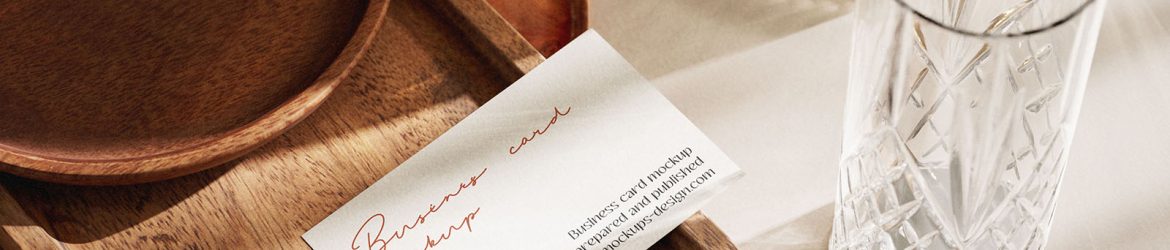 Business card
kup
Business card mockup
repared and published
mockups-design.com